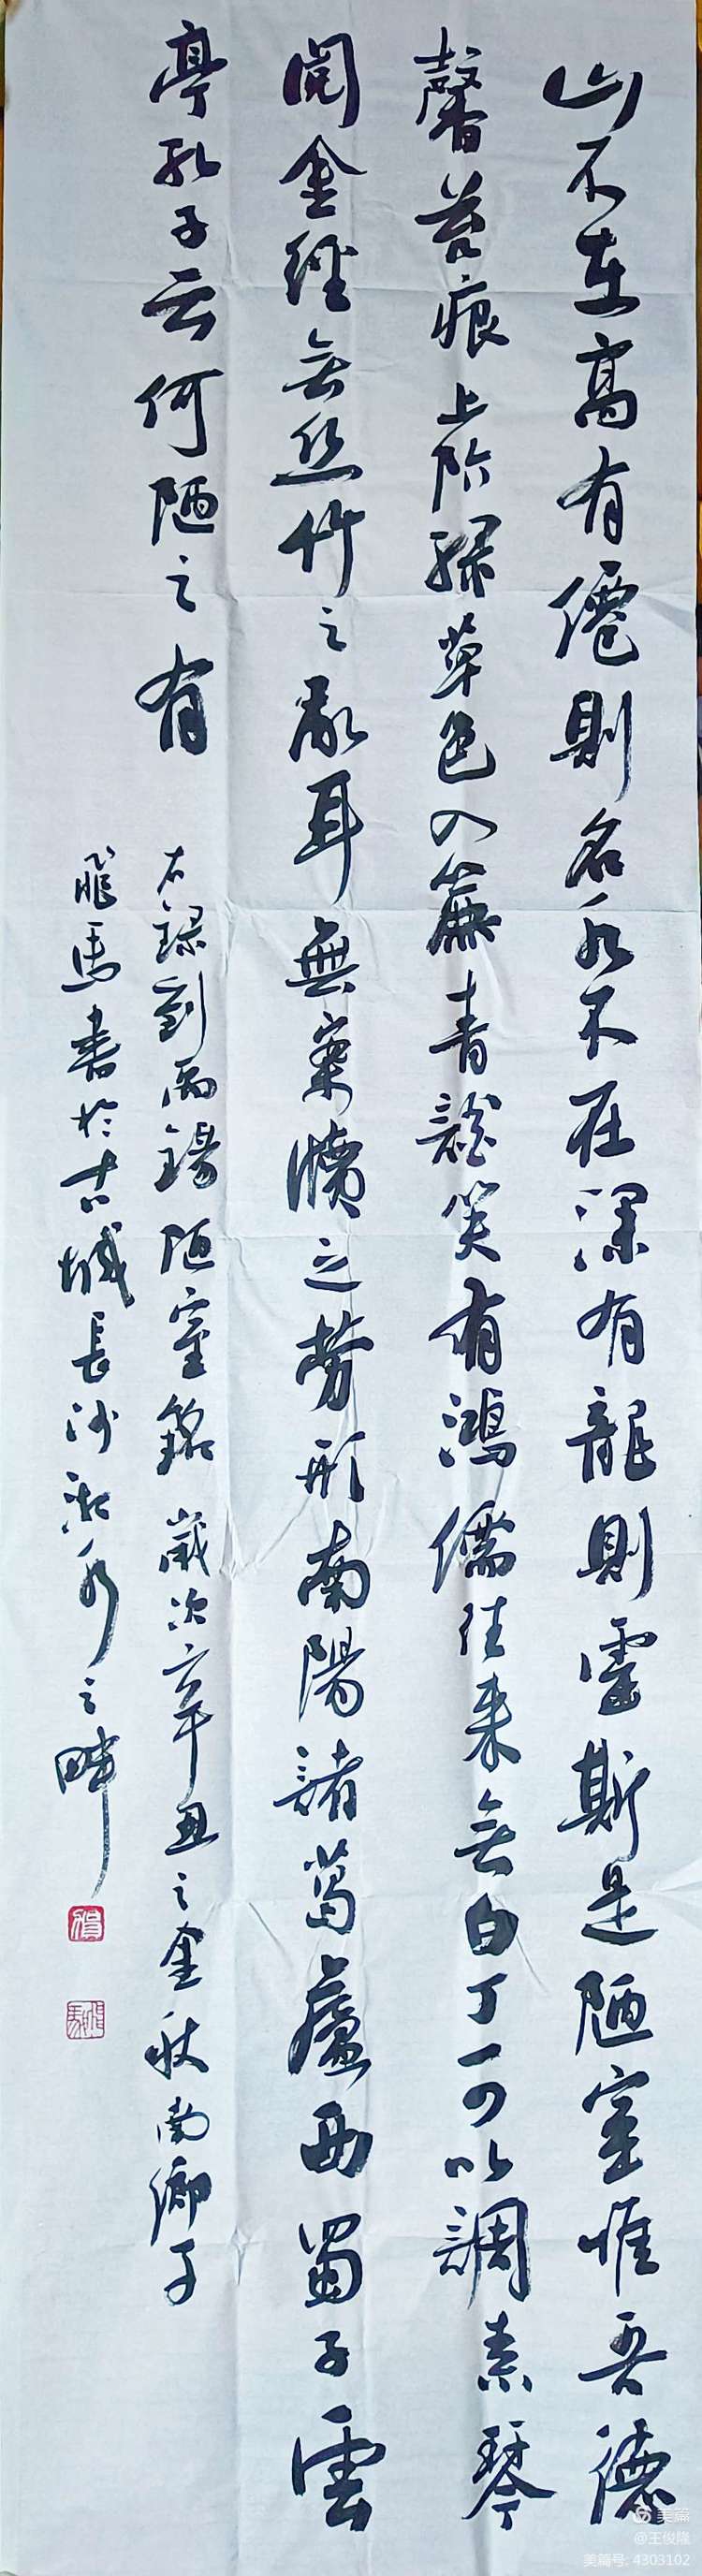 山不在高有僊則名水不在深有龍則靈斯是陋室惟吾德
馨苔痕上階綠草色入簾青談笑有鴻儒往来無白丁可以調素琴
閱金經無丝竹之亂耳無案牘之勞形南陽諸葛廬西蜀子雲
亭孔子云何陋之有
右録劉禹錫陋室銘歲次辛丑之金秋南鄉子
飛馬書於古城長沙湘水之畔
美篇
@王俊隆
美篇号: 4303102